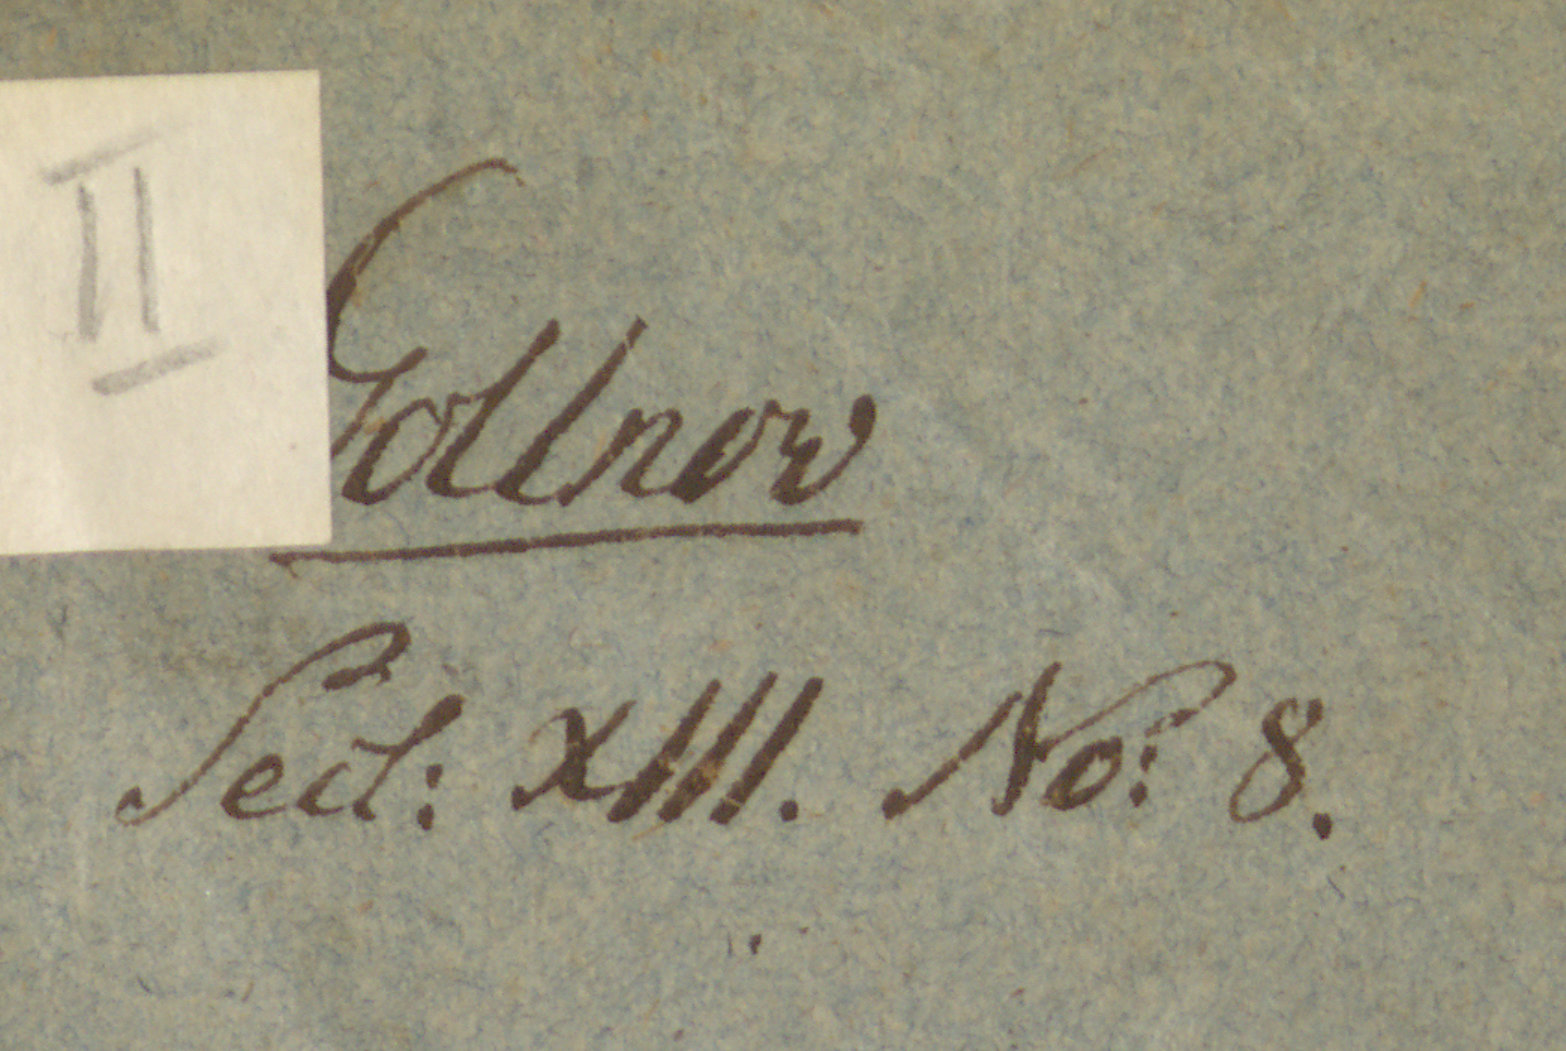 II
Gollnow
Sect: XIII. No: 8.